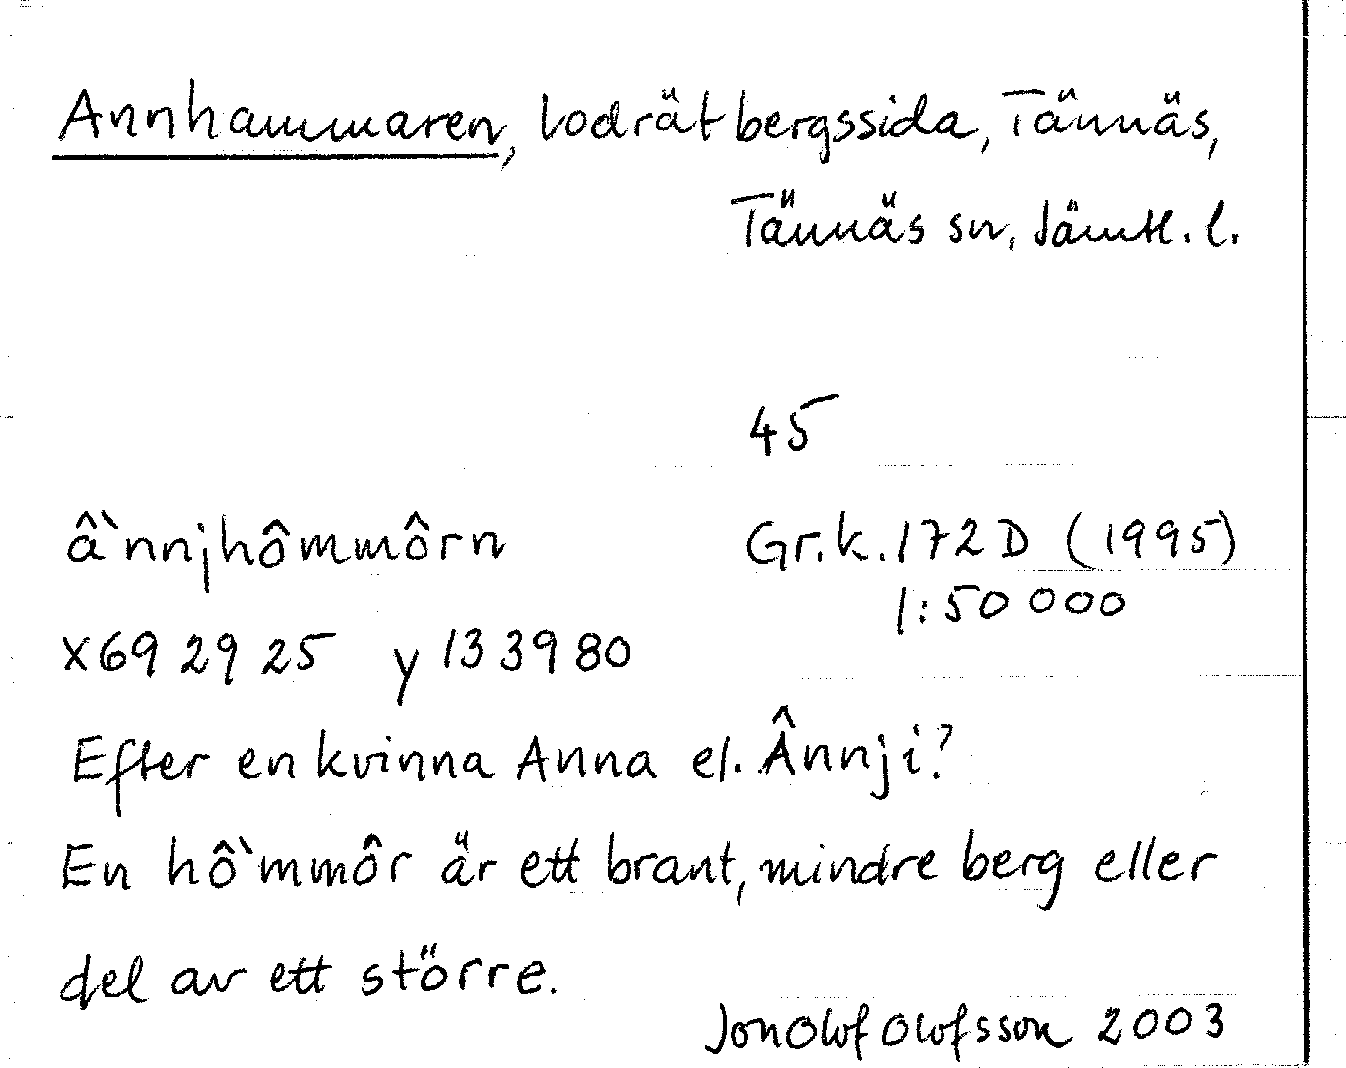 Annhammaren, lodrät bergssida, Tännäs,
Tännäs sn, Jämtl. l.
45
â`nnjhômmôrn
Gr.k. 172 D (1995)
1:50 000
x69 29 25 y 13 39 80
Efter en kvinna Anna el. Ânnji?
En hô`mmôr är ett brant, mindre berg eller
del av ett större.
JonOlof Olofsson 2003